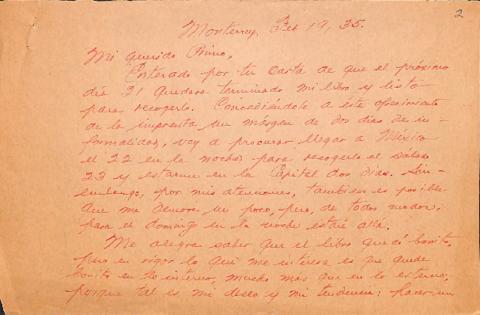 2
Monterrey, Feb 19, 35.
Mi querido Primo,
Enterado por tu carta de que el próximo
día 21 quedará terminado mi libro y listo
para recogerlo. Concediéndole a este ofrecimiento
de la imprenta un márgen de dos días de in-
formalidad, voy a procurar llegar a México
el 22 en la noche para recogerlo el sábado
23 y estarme en la Capital dos días. Sin
embargo, por mis atenciones, también es posible
que me demore un poco, pero, de todos modos,
para el domingo en la noche estaré allá.
Me alegra saber que el libro quedó bonito,
pero en rigor lo que me interesa es que quede
bonito en lo interno, mucho más que en lo externo,
porque tal es mi deseo y mi tendencia: hacer un